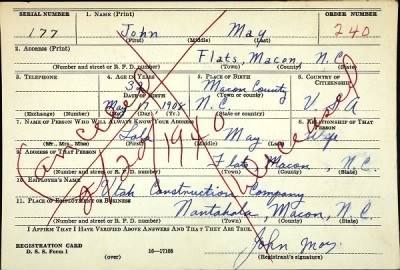 SERIAL NUMBER 1. NAME (Print) ORDER NUMBER
177 John May 240
(First) (Middle) (Last)
2. ADDRESS (Print)
Flats, Macon, N.C.
(Number and street or R. F. D. number) (Town) (County) (State)
3. TELEPHONE 4. AGE IN YEARS 5. PLACE OF BIRTH 6. COUNTRY OF CITIZENSHIP
Macon County
DATE OF BIRTH (Town or county)
May 17 N.C. U S A
(Exchange) (No.) (Mo.) (Day) (Yr.) (State or country)
7. NAME OF PERSON WHO WILL ALWAYS KNOW YOUR ADDRESS 8. RELATIONSHIP OF THAT PERSON
May Wife
(Mr., Mrs., Miss) (First) (Middle) (Last)
9. ADDRESS OF THAT PERSON
Flats, Macon, N.C.
(Number and street or R. F. D. number) (Town) (County) (State)
10. EMPLOYER'S NAME
Utah Construction Company
11. PLACE OF EMPLOYMENT OR BUSINESS
Nantahala, Macon, N.C.
(Number and street or R. F. D. number) (Town) (County) (State)
I AFFIRM THAT I HAVE VERIFIED ABOVE ANSWERS AND THAT THEY ARE TRUE.
REGISTRATION CARD
D. S. S. Form 1 16-17105 John May
(over) (Registrant's signature)
Cancelled
1940